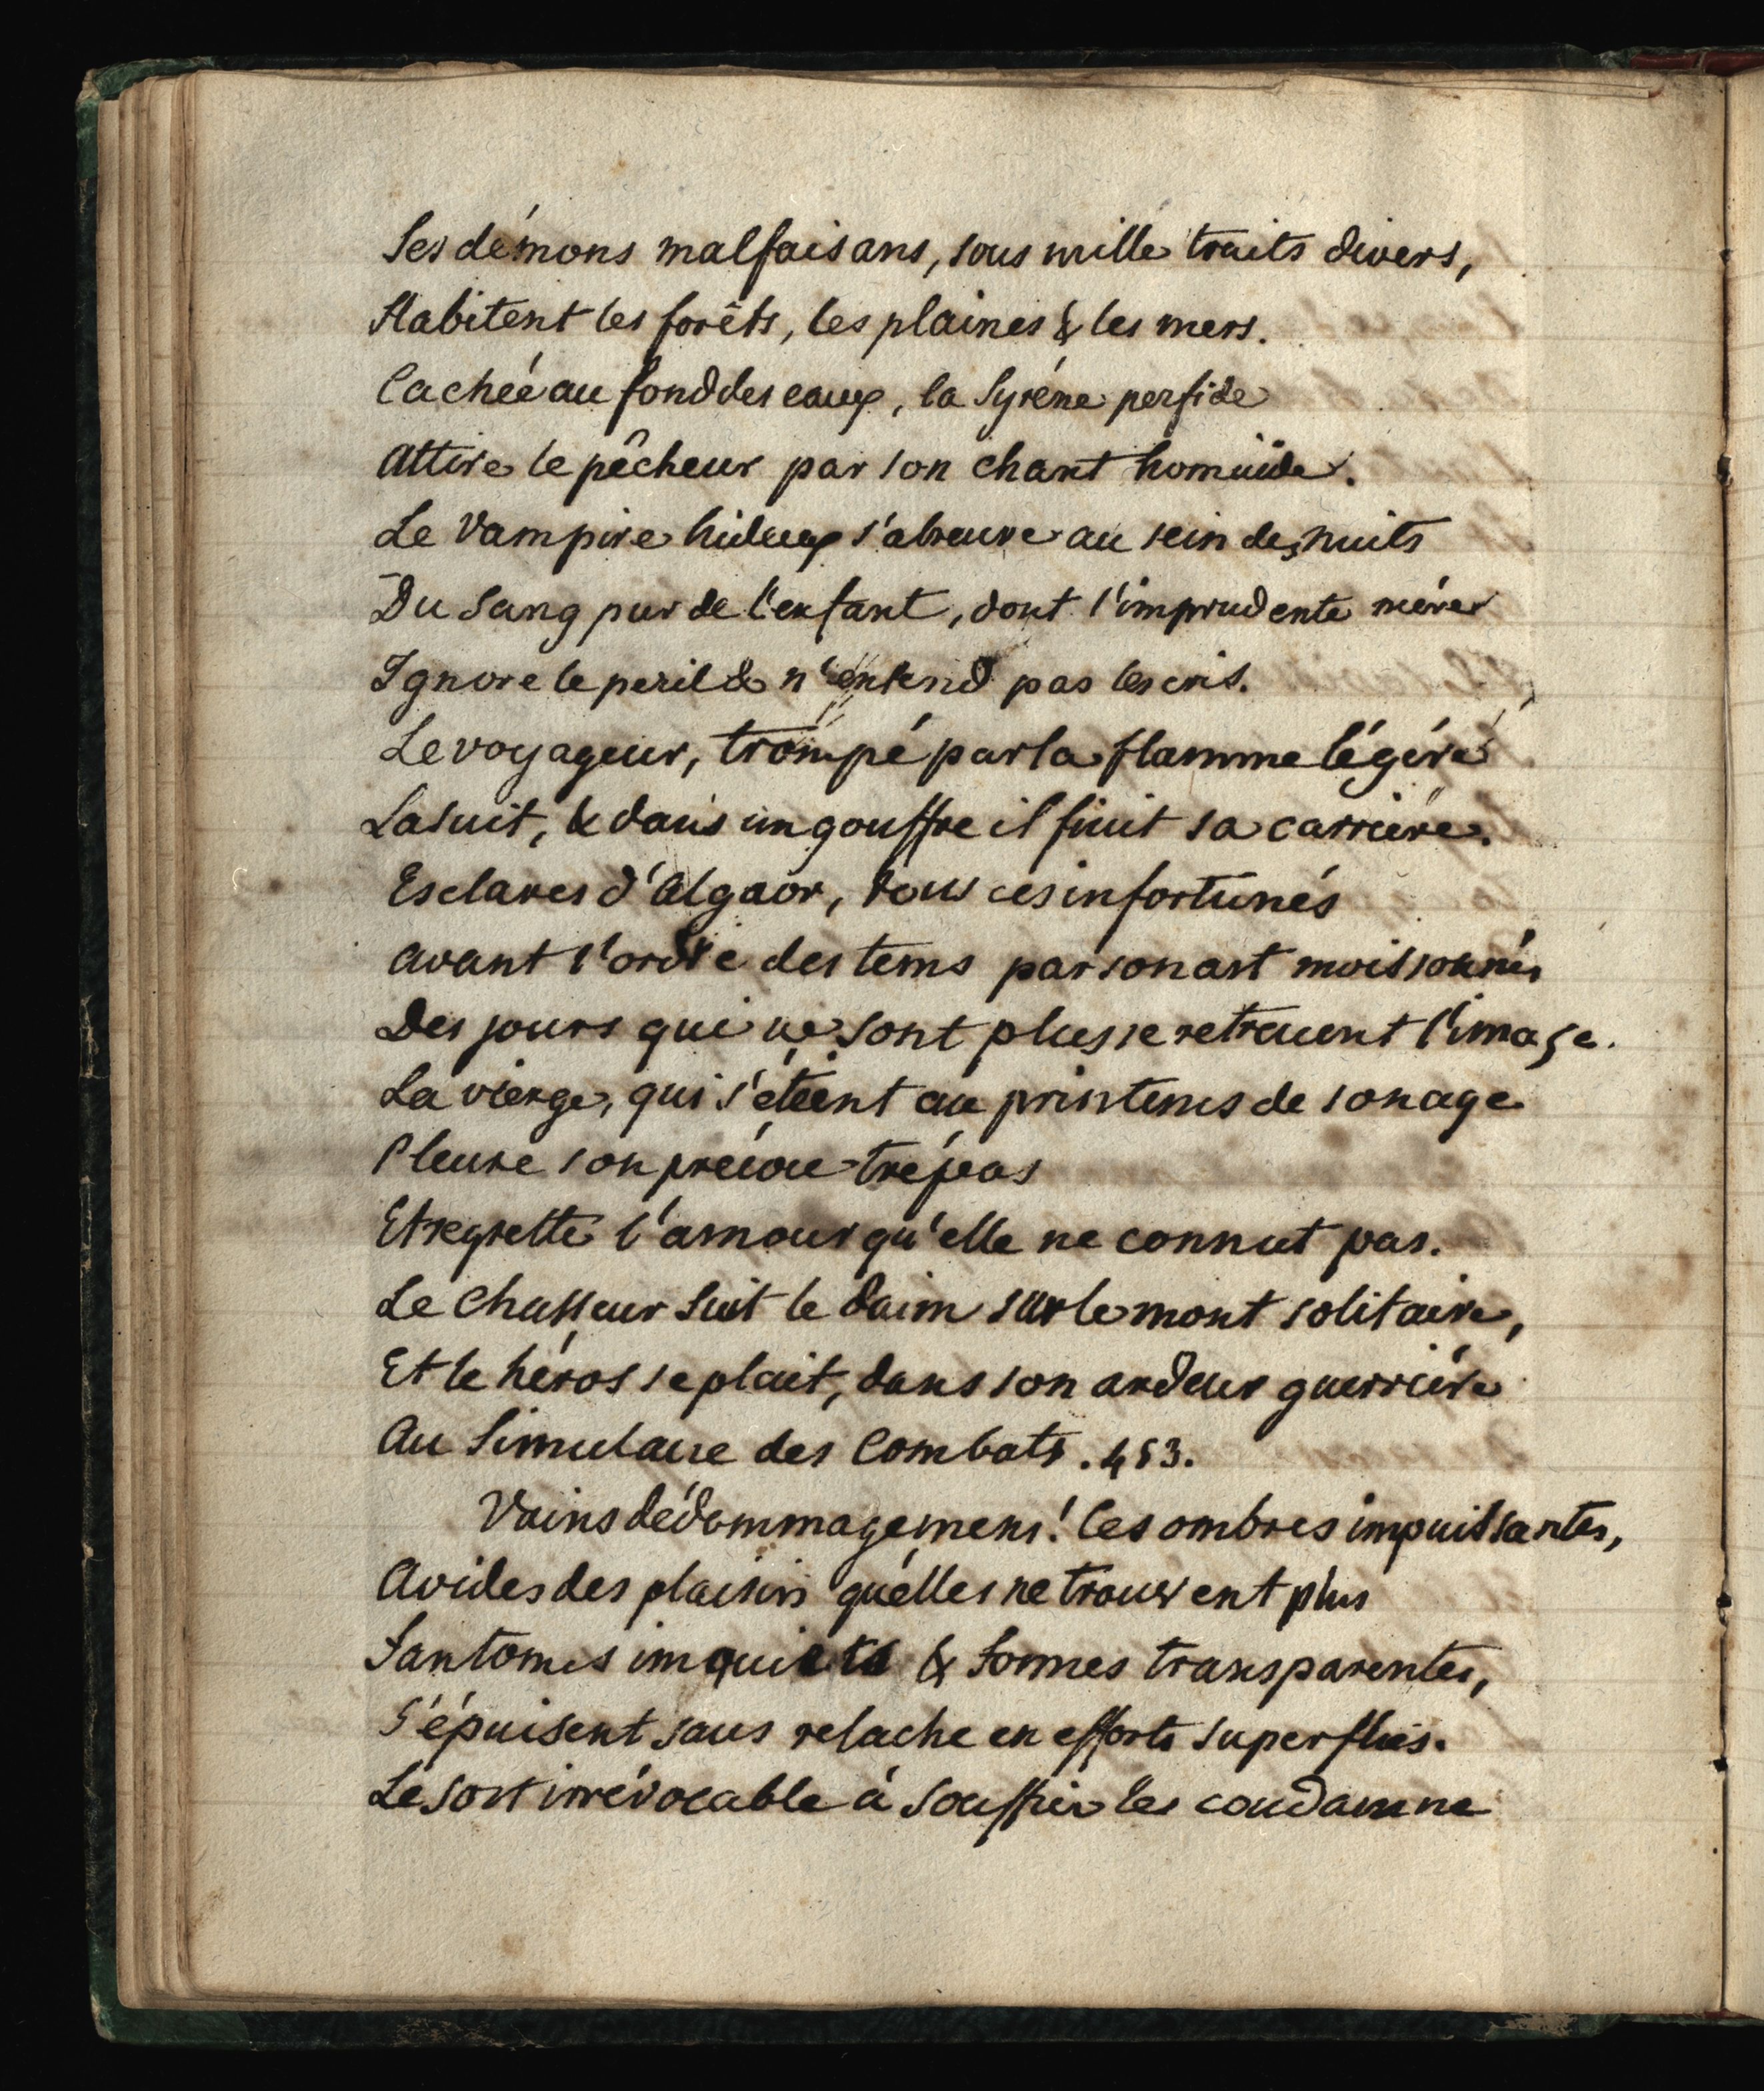 Ses démons malfaisans, sous mille traits divers,
Habitent les forêts, les plaines & les mers.
Cachée au fond des eaux, la Syréne perfide
Attire le pêcheur par son chant homicide.
Le Vampire hideux s'abreuve au sein des nuits
Du Sang pur de l'enfant, dont l'imprudente mére
Ignore le peril & n'entend pas les cris.
Le voyageur, trompé par la flamme légére
La suit, & dans un gouffre il finit sa carriére.
Esclaves d'Algaor, tous ces infortunés
Avant l'ordre des tems par son art moissonnés
Des jours qui ne sont plus se retracent l'image.
La vierge, qui s'éteint au printems de son age
Pleure son précoce trépas
Et regrette l'amour qu'elle ne connut pas.
Le Chasseur suit le daim sur le mont solitaire,
Et le héros se plait, dans son ardeur guerriére
Au Simulacre des Combats. 453.
Vains dédommagemens! Ces ombres impuissantes,
Avides des plaisirs qu'elles ne trouvent plus
Fantomes inquiets & formes transparentes,
S'épuisent sans relache en efforts superflus.
Le sort irrévocable à souffrir les condamne